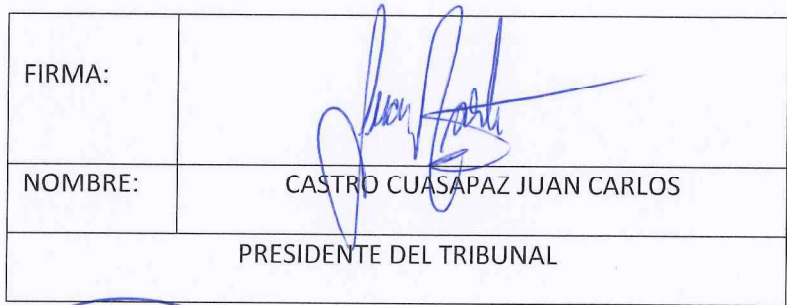 FIRMA:
NOMBRE: CASTRO CUASAPAZ JUAN CARLOS
PRESIDENTE DEL TRIBUNAL